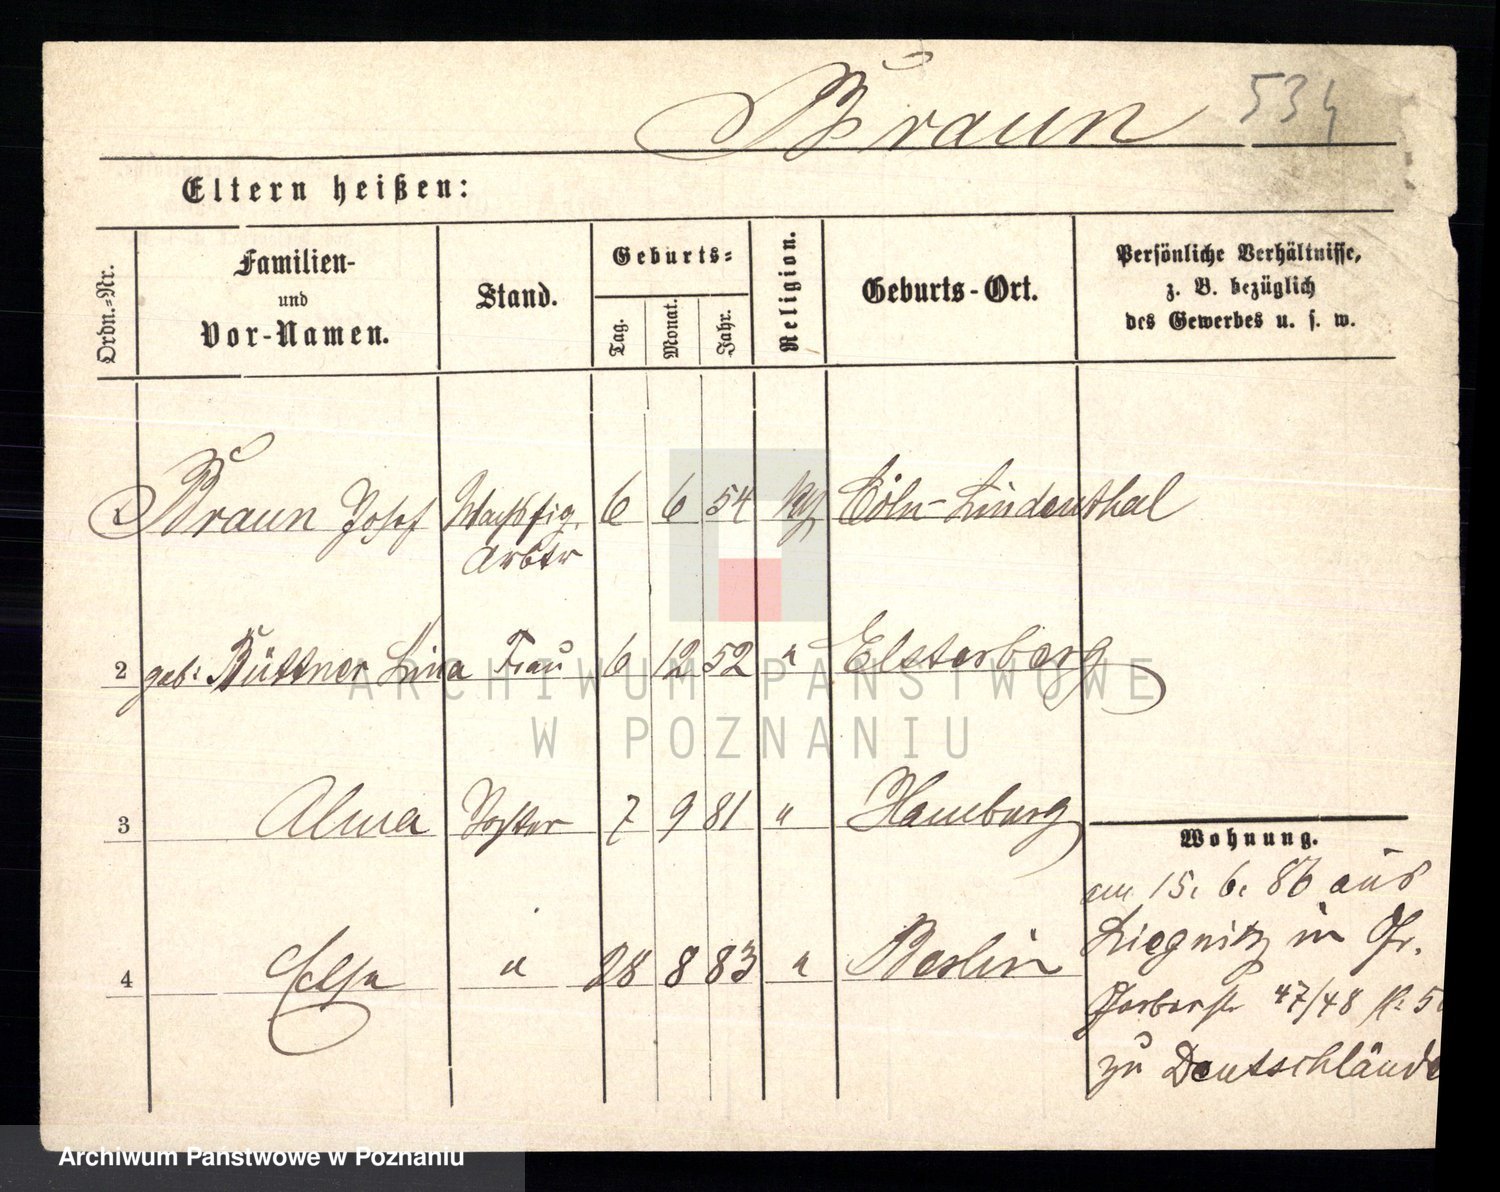 Braun 534
Eltern heißen:
Ordn.-Nr.
Familien-
und
Vor-Namen.
Stand.
Geburts-
Tag.
Monat.
Jahr.
Religion.
Geburts-Ort.
Persönliche Verhältnisse,
z. B. bezüglich
des Gewerbes u. s. w.
Braun Josef Wachsfig. 6 6 54 Cöln-Lindenthal
Arbtr
2 geb: Büttner Lina Frau 6 12 52 " Elsterberg
3 Alma Tochter 7 9 81 " Hamburg
4 Elsa " 28 8 83 " Berlin
Wohnung.
am 15. 6. 86 aus
Liegnitz in Gr.
Gerberstr 47/48
zu Deutschlände
ARCHIWUM PAŃSTWOWE
W POZNANIU
Archiwum Państwowe w Poznaniu